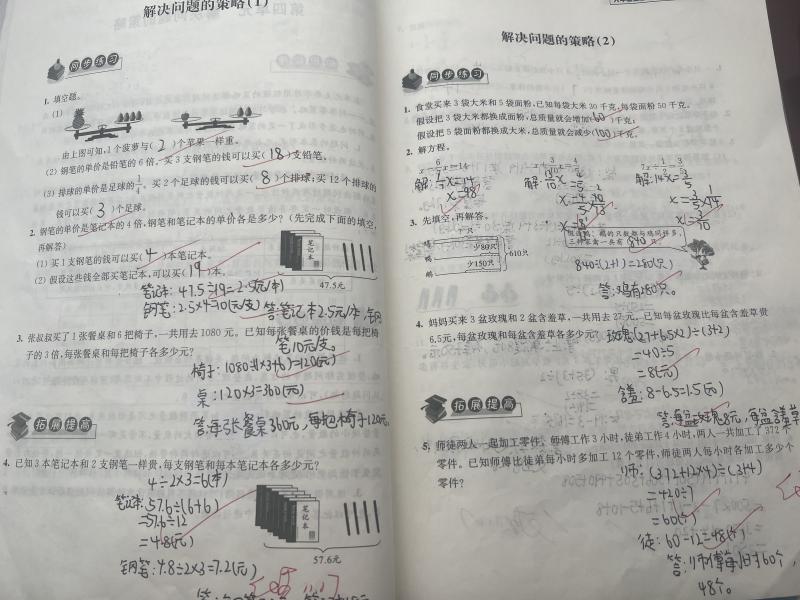 解决问题的策略(1)
同步练习
1. 填空题。
(1)
由上图可知,1个菠萝与( 2 )个苹果一样重。
(2) 钢笔的单价是铅笔的6倍,买3支钢笔的钱可以买( 18 )支铅笔。
(3) 排球的单价是足球的1/4,买2个足球的钱可以买( 8 )个排球;买12个排球的
钱可以买( 3 )个足球。
2. 钢笔的单价是笔记本的4倍,钢笔和笔记本的单价各是多少?(先完成下面的填空,
再解答)
(1) 买1支钢笔的钱可以买( 4 )本笔记本。
(2) 假设这些钱全部买笔记本,可以买( 19 )本。
笔记本
47.5元
笔记本: 47.5÷19=2.5(元/本)
钢笔: 2.5×4=10(元/支) 答:笔记本2.5元/本,钢
笔10元/支。
3. 张叔叔买了1张餐桌和6把椅子,一共用去1080元。已知每张餐桌的价钱是每把椅
子的3倍,每张餐桌和每把椅子各多少元?
椅子: 1080÷(1×3+6)=120(元)
桌: 120×3=360(元)
答:每张餐桌360元,每把椅子120元。
拓展提高
4. 已知3本笔记本和2支钢笔一样贵,每支钢笔和每本笔记本各多少元?
4÷2×3=6(本)
笔记本: 57.6÷(6+6)
=57.6÷12
=4.8(元)
钢笔: 4.8÷2×3=7.2(元)
笔记本
57.6元
解决问题的策略(2)
同步练习
1. 食堂买来3袋大米和5袋面粉,已知每袋大米30千克,每袋面粉50千克。
假设把3袋大米都换成面粉,总质量就会增加( 60 )千克;
假设把5袋面粉都换成大米,总质量就会减少( 100 )千克。
2. 解方程。
3. 先填空,再解答。
少80只
少150只
610只
三种家禽一共有( 840 )只。
840÷(2+1)=280(只)
答:鸡有280只。
4. 妈妈买来3盆玫瑰和2盆含羞草,一共用去27元。已知每盆玫瑰比每盆含羞草贵
6.5元,每盆玫瑰和每盆含羞草各多少元?
玫瑰: (27+6.5×2)÷(3+2)
=40÷5
=8(元)
含羞: 8-6.5=1.5(元)
拓展提高
5. 师徒两人一起加工零件。师傅工作3小时,徒弟工作4小时,两人一共加工了372个
零件。已知师傅比徒弟每小时多加工12个零件,师徒两人每小时各加工多少个
零件?
师: (372+12×4)÷(3+4)
=420÷7
=60(个)
徒: 60-12=48(个)
答:师傅每小时60个,
48个。